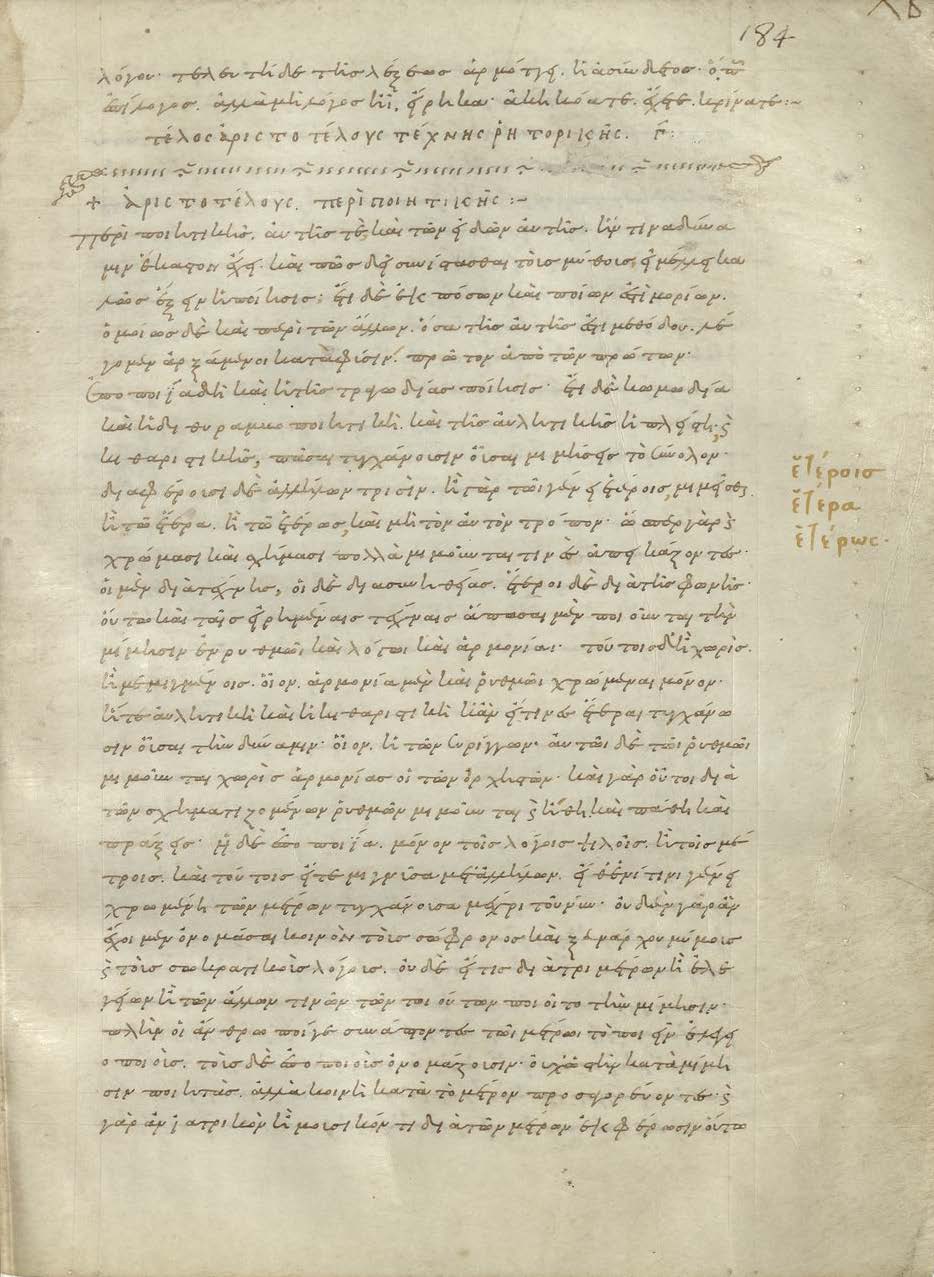 184
λόγον· τελευτὴ δὲ τῆς λέξεως ἁρμόττει ἡ ἀσύνδετος· ὅπως
ἐπίλογος. ἀλλὰ μὴ λόγος ἦι, εἴρηκα· ἀκηκόατε. ἔχετε. κρίνατε:~
τέλος ἀριστοτέλους τέχνης ῥητορικῆς. γ̄:
+ ἀριστοτέλους. περὶ ποιητικῆς:~
περὶ ποιητικῆς. αὐτῆς τὲ καὶ τῶν εἰδῶν αὐτῆς. ἥν τινα δύνα
μιν ἕκαστον ἔχει. καὶ πῶς δεῖ συνίστασθαι τοὺς μύθους, εἰ μέλλει κα
λῶς ἕξειν ἡ ποίησις: ἔτι δὲ ἐκ πόσων καὶ ποίων ἐστὶ μορίων.
ὁμοίως δὲ καὶ περὶ τῶν ἄλλων. ὅσα τῆς αὐτῆς ἐστι μεθόδου. λέ
γομεν ἀρξάμενοι κατὰ φύσιν. πρῶτον ἀπὸ τῶν πρώτων·
ἐποποιΐα δὴ καὶ ἡ τῆς τραγωδίας ποίησις· ἔτι δὲ κωμωδία
καὶ ἡ διθυραμβοποιητικὴ. καὶ τῆς αὐλητικῆς ἡ πλείστη, καὶ
κιθαριστικῆς, πᾶσαι τυγχάνουσιν οὖσαι μιμήσεις τὸ σύνολον·
διαφέρουσι δὲ ἀλλήλων τρισὶν. ἢ γὰρ τῶι γένει ἑτέροις, μιμεῖσθαι
ἢ τῶ ἕτερα. ἢ τῶ ἑτέρως, καὶ μὴ τὸν αὐτὸν τρόπον· ὥσπερ γὰρ καὶ
χρώμασι καὶ σχήμασι πολλὰ μιμοῦνταί τινες ἀπεικάζοντες·
οἱ μὲν διὰ τέχνης, οἱ δὲ διὰ συνηθείας. ἕτεροι δὲ διὰ τῆς φωνῆς·
οὕτω καὶ ταῖς εἰρημέναις τέχναις ἅπασαι μὲν ποιοῦνται τὴν
μίμησιν ἐν ῥυθμῶι καὶ λόγωι καὶ ἁρμονίαι· τούτοις δὲ ἢ χωρὶς.
ἢ μεμιγμένοις. οἷον. ἁρμονία μὲν καὶ ῥυθμῶι χρώμεναι μόνον·
ἥτε αὐλητικὴ καὶ ἡ κιθαριστικὴ κἂν εἴ τινες ἕτεραι τυγχάνω
σιν οὖσαι τὴν δύναμιν· οἷον. ἡ τῶν συρίγγων· αὐτῶι δὲ τῶι ῥυθμῶι
μιμοῦνται χωρὶς ἁρμονίας οἱ τῶν ὀρχηστῶν· καὶ γὰρ οὗτοι διὰ
τῶν σχηματιζομένων ῥυθμῶν μιμοῦνται καὶ ἤθη καὶ πάθη καὶ
πράξεις· ἡ δὲ ἐποποιΐα. μόνον τοῖς λόγοις ψιλοῖς. ἢ τοῖς μέ
τροις. καὶ τούτοις εἴτε μιγνῦσα μετἀλλήλων. εἴθ' ἑνί τινι γένει
χρωμένη τῶν μέτρων τυγχάνουσα μέχρι τοῦ νῦν· οὐδὲν γὰρ ἂν
ἔχοιμεν ὀνομάσαι κοινὸν τοὺς σώφρονος καὶ ξενάρχου μίμους
καὶ τοὺς σωκρατικοὺς λόγους. οὐδὲ εἴ τις διὰ τριμέτρων ἢ ἐλε
γείων ἢ τῶν ἄλλων τινῶν τῶν τοιούτων ποιοῖτο τὴν μίμησιν·
πλὴν οἱ ἄνθρωποί γε συνάπτοντες τῶι μέτρωι τὸ ποιεῖν ἐλεγει
οποιοὺς. τοὺς δὲ ἐποποιοὺς ὀνομάζουσιν· οὐχ ὡς τὴν κατὰ μίμη
σιν ποιητὰς. ἀλλὰ κοινῆ κατὰ τὸ μέτρον προσαγορεύοντες· καὶ
γὰρ ἂν ἰατρικὸν ἢ μουσικόν τι διὰ τῶν μέτρων ἐκφέρωσιν οὕτω
ἑτέροις
ἕτερα
ἑτέρως·